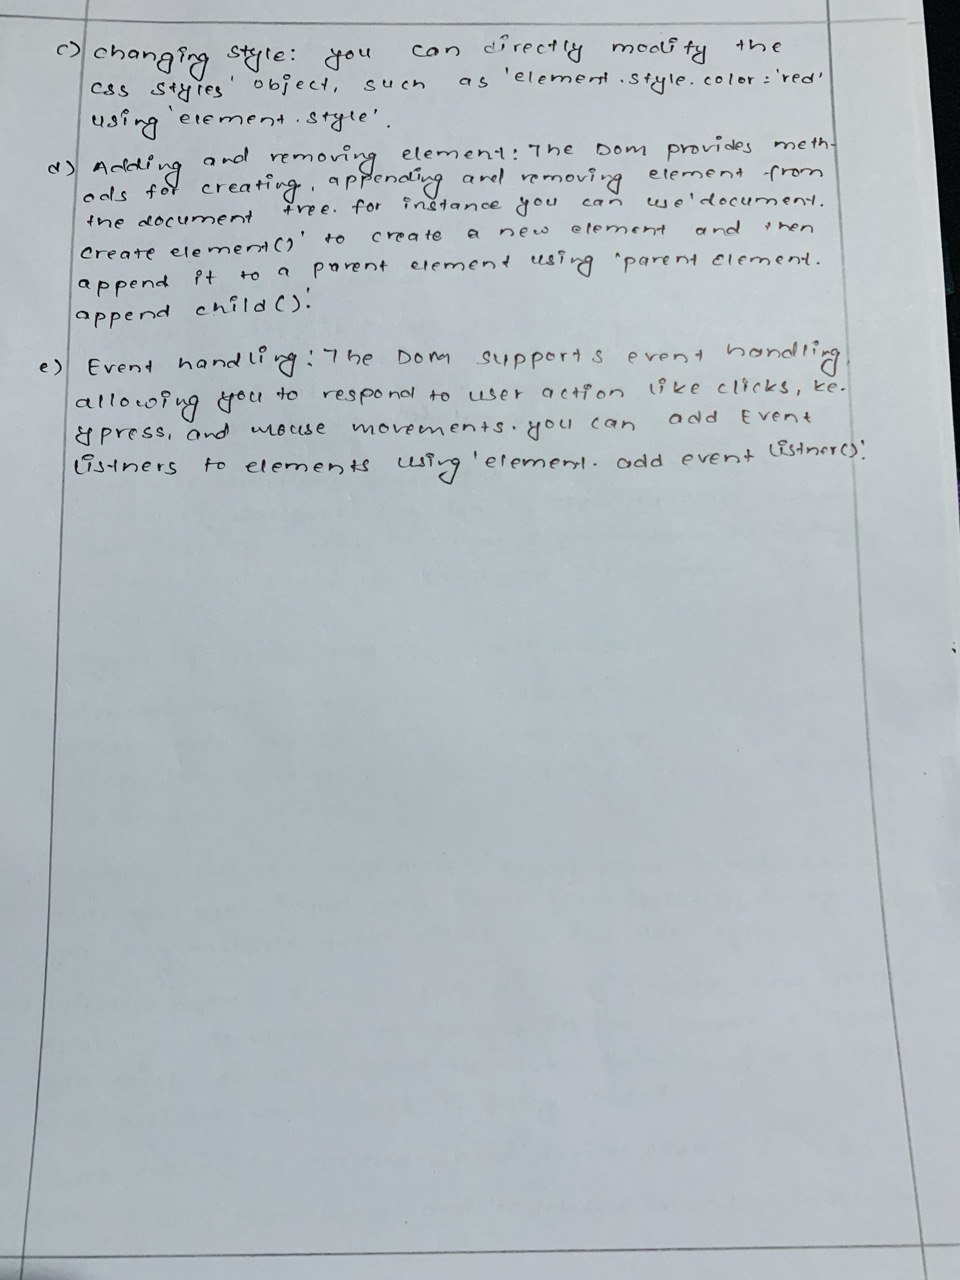 c) changing style: you can directly modify the
css styles' object, such as 'element.style.color='red'
using 'element.style'.
d) Adding and removing element: The DOM provides meth-
ods for creating, appending and removing element from
the document tree. for instance you can use 'document.
create element()' to create a new element and then
append it to a parent element using 'parent Element.
append child().'
e) Event handling: The DOM supports event handling,
allowing you to respond to user action like clicks, ke-
ypress, and mouse movements. you can add Event
listners to elements using 'element. add event listner().'